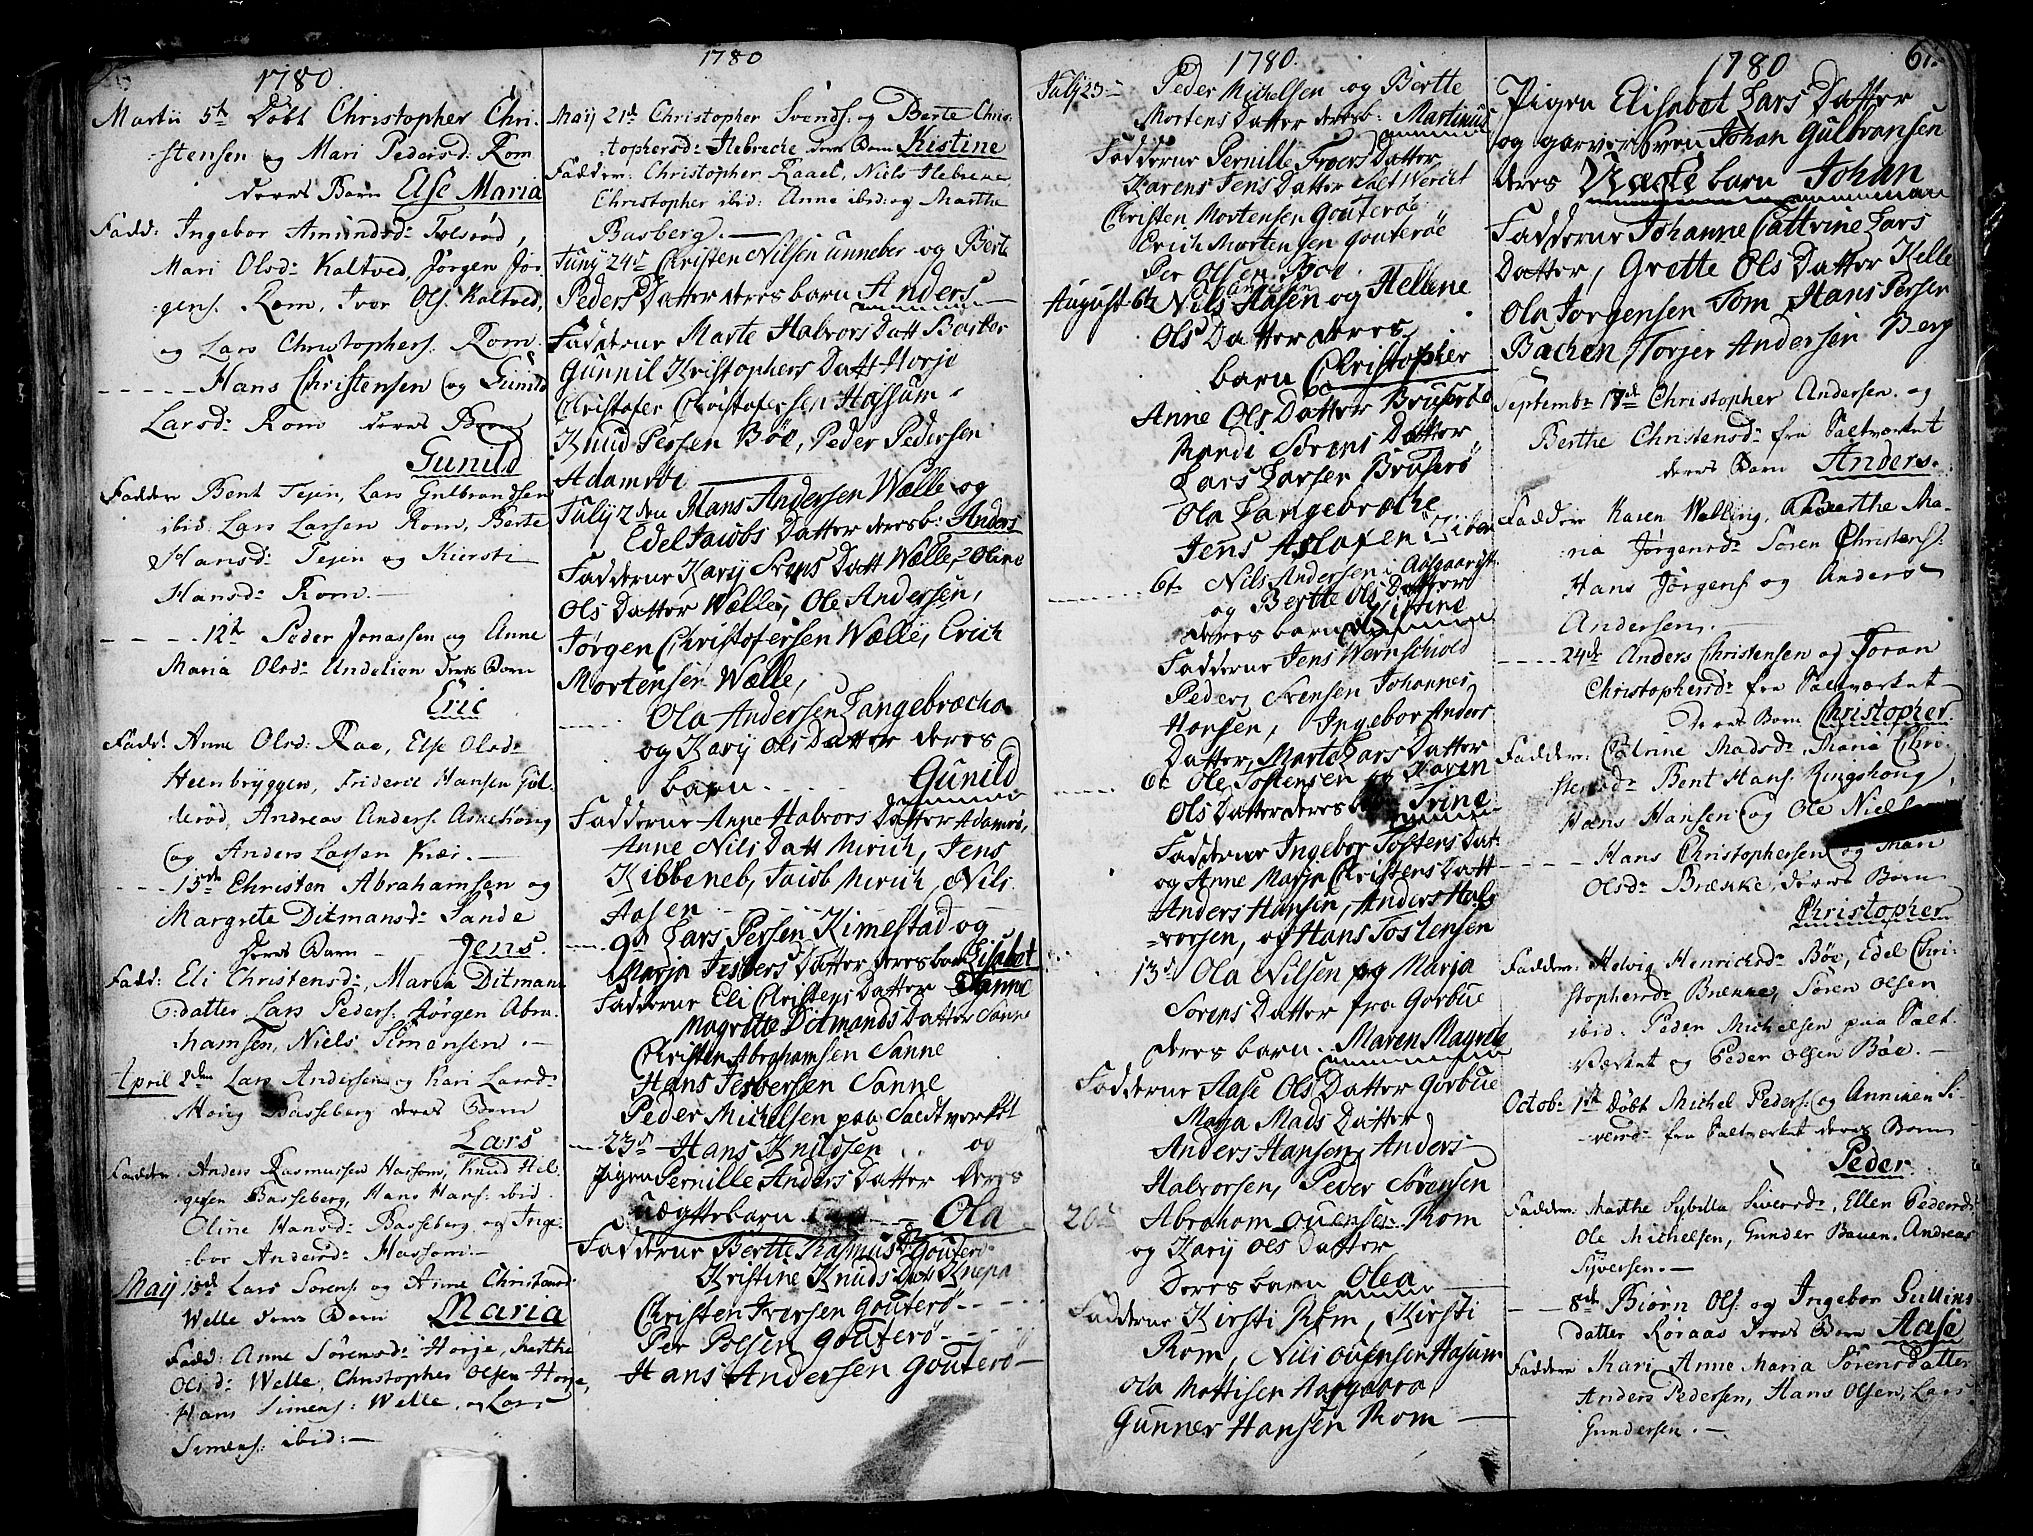 1780.
Martii 5te Döbt Christopher Chri-
stensen og Mari Pedersd: Rom
deres Barn Else Maria
Fadd: Ingebor Amundsd: Tolsröd,
Mari Olsd: Kaltved, Jörgen Jör-
gens. Rom, Iver Ols: Kaltved,
og Lars Christophers: Rom.
Hans Christensen og Gunild
Larsd: Rom deres Barn
Gunild
Faddere Bent Tejen, Lars Gulbrandsen
ibid: Lars Larsen Rom, Berte
Hansd: Tejen og Kiersti
Hansd: Rom.
12te Peder Jonassen og Anne
Maria Olsd: deres Barn
Eric
Fadd: Anne Olsd: Raae, Else Olsd:
Steenbryggen, Friderik Hansen Gul-
deröd, Andreas Anders: Askehoug
og Anders Larsen Kiær.
15de Christen Abrahamsen og
Margrete Ditmansd: Sande
deres Barn Jens.
Fadd: Eli Christensd:, Maria Ditmans
datter Lars Peders: Jörgen Abra-
hamsen, Niels Simensen.
April 2den Lars Andersen og Kari Larsd:
Houg Basseberg deres Barn
Lars
Faddere Anders Rasmussen Hassom, Knud Hel-
gesen Basseberg, Hans Hans: ibid
Oline Hansd: Basseberg, og Inge-
bor Andersd: Hassom.
May 15de Lars Sörens: og Anne Christensd:
Welle deres Barn Maria
Fadd: Anne Sörensd: Horje, Marthe
Olsd: Welle, Christopher Olsen Horje,
Hans Simens: Welle, og Lars
Simens: ibid:
1780
Maij 21de Christopher Svends: og Berte Chris-
tophersd: Hebreche deres Barn Kistine
Fadder: Christopher Raael, Niels Hebreche
Christopher ibid: Anne ibid: og Marthe
Basberg.
Junij 24de Christen Nilsen unneber og Berte
Peders Datter deres barn Anders
Fadderne Marte Halvors Datt Basber
Gunnil Kristophers Datt Horje
Christofer Christofersen Hassum
Knud Pessen Böe, Peder Pedersen
Adamröe
Julij 2den Hans Andersen Wælle og
Edel Jacobs Datter deres b: Anders
Fadderne Karij Srens Datt Wælle, Oline
Ols Datter Wælle, Ole Andersen,
Jörgen Christofersen Wælle, Erich
Mortensen Wælle,
Ola Andersen Langebræcha
og Karij Ols Datter deres
barn Gunild
Fadderne Anne Halvors Datter Adamrö,
Anne Nils Datt Mirich, Jens
Kibbeneb, Jacob Mirich, Nils
Aasen
9de Lars Persen Kimestad og
Marja Jesbers Datter deres barn Lisabet
Fadderne Eli Christens Datter Sanne
Magrette Ditmands Datter Sanne
Christen Abrahamsen Sanne
Hans Jesbersen Sanne
Peder Michelsen paa Saltverket
23de Hans Knudsen og
pigen Pernille Anders Datter deres
uægttebarn Ola
Fadderne Bertte Rasmus D: Gouterö
Kristine Knuds Dat Knepa
Christen Iversen Gouterö
Per Polsen Gouterö
Hans Andersen Gouterö
1780.
Julij 23 Peder Michelsen og Bertte
Mortens Datter deres b: Martinus
Fadderne Pernille Troers Datter
Karens Jens Datter Salt Wercit
Christen Mortensen Gouteröe
Erich Mortensen Gouteröe
Per Olsen Böe.
August 6te Nils Aasen og Hellene
Ols Datter deres
barn Christopher
Anne Ols Datter Bruserö
Randi Sörens Datter
Lars Larsen Bruserö
Ola Langebræche
Jens Aslasen Kiben
6te Nils Andersen i Aasgaarst
og Bertte Ols Datter
deres barn Kistine
Fadderne Jens Wernschiold
Peder Svensen Johannes
Hansen, Ingebor Anders
Datter, Marte Lars Datter
6te Ole Tostensen og Karen
Ols Datter deres b: Trine
Fadderne Ingebor Tostens Dat-
og Anne Marja Christens Datt
Anders Hansen, Anders Hal-
vorsen, og Hans Tostensen
13de Ola Nilsen og Marja
Sörens Datter fra Gorbue
deres barn. Maren Magrete
Fadderne Aase Ols Datter Gorbue
Marja Mads Datter
Anders Hansen, Anders
Halvorsen, Peder Sörensen
20de Abraham ouensen Rom
og Karij Ols Datter
deres barn Olea
Fadderne Kirsti Rom, Kirsti
Rom, Nils ouensen Hasum
Ola Mattisen
Gunner Hansen Rom
1780
61.
Pigen Elisabet Lars Datter
og garversven Johan Gulbransen
deres Uægte barn Johan
Fadderne Johanne Cattrine Lars
Datter, Grette Ols Datter Kelle
Ola Jorgensen Tom Hans Persen
Bachen, Torjer Andersen Berg
Septembr 17de Christopher Andersen og
Berthe Christensd: fra Saltværket
deres Barn Anders.
Faddere Karen Welling, Berthe Ma-
ria Jörgensd: Sören Christens:
Hans Jörgens: og Anders
Andersen.
24de Anders Christensen og Joran
Christophersd: fra Saltværket
deres Barn Christopher
Fadder: Catrine Madsd: Maria Chri-
stensd: Bent Hans: Ringshoug,
Hans Hansen og Ole Nielsen
Hans Christophersen og Mari
Olsd: Brække, deres Barn
Christopher
Fadder: Helvig Henrichsd: Böe, Edel Chri-
stophersd: Brække, Sören Olsen
ibid: Peder Michelsen paa Salt-
værket og Peder Olsen Böe.
Octobr 1ste Döbt Michel Peders: og Anniken Si-
versd: fra Saltværket deres Barn
Peder.
Fadder: Marthe Sybilla Siversd:, Ellen Pedersd:
Ole Michelsen, Gunder Bauen, Andreas
Syversen.
8de Biörn Ols: og Ingebor Gullins
datter Röraas deres Barn Aase
Faddere Kari Anne Maria Sörensdatter
Anders Pedersen, Hans Olsen, Lars
Gundersen.